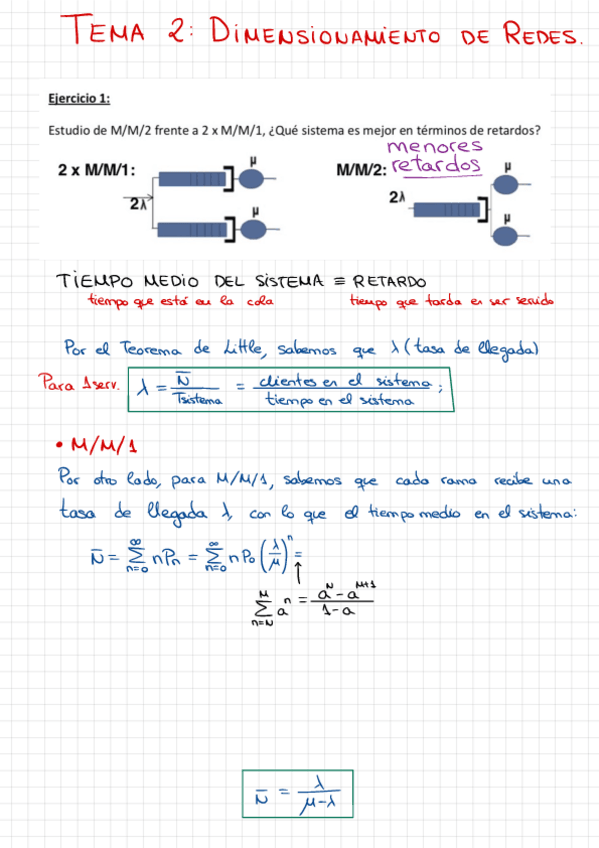 TEMA 2: DIMENSIONAMIENTO DE REDES.
Ejercicio 1:
Estudio de M/M/2 frente a 2 x M/M/1, ¿Qué sistema es mejor en términos de retardos?
menores
retardos
2 x M/M/1:
μ
2λ
μ
M/M/2:
μ
2λ
μ
TIEMPO MEDIO DEL SISTEMA ≡ RETARDO
tiempo que está en la cola
tiempo que tarda en ser servido
Por el Teorema de Little, sabemos que λ (tasa de llegada)
Para 1 serv. λ = N̄ / Tsistema = clientes en el sistema / tiempo en el sistema ;
• M/M/1
Por otro lado, para M/M/1, sabemos que cada rama recibe una
tasa de llegada λ, con lo que el tiempo medio en el sistema:
N̄ = ∑_{n=0}^{∞} nPn = ∑_{n=0}^{∞} nP₀ (λ/μ)^n =
∑_{n=N}^{M} a^n = (a^N - a^{M+1}) / (1-a)
N̄ = λ / (μ-λ)